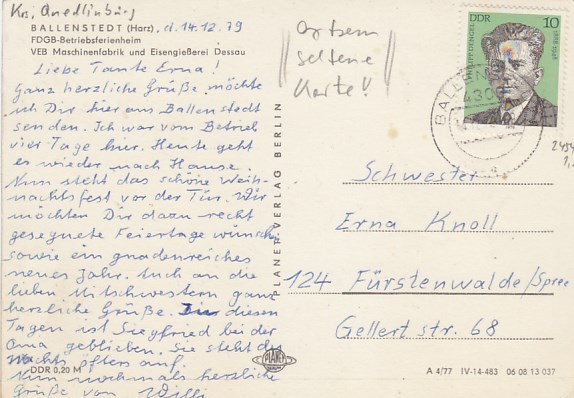 Kr. Quedlinburg
BALLENSTEDT (Harz), d. 14.12.79
FDGB-Betriebsferienheim
VEB Maschinenfabrik und Eisengießerei Dessau
Liebe Tante Erna!
Ganz herzliche Grüße möchte
ich Dir hier aus Ballenstedt
senden. Ich war vom Betrieb
vier Tage hier. Heute geht
es wieder nach Hause.
Nun steht das schöne Weih-
nachtsfest vor der Tür. Wir
möchten Dir dazu recht
gesegnete Feiertage wünschen
sowie ein gnadenreiches
neues Jahr. Auch an die
lieben Mitschwestern ganz
herzliche Grüße. In diesen
Tagen ist Siegfried bei der
Oma geblieben. Sie steht des
Nachts öfters auf.
Nun nochmals herzliche
Grüße von Willi
DDR 0,20 M
PLANET-VERLAG BERLIN
PLANET
seltene
Karte!!
DDR 10
BALLENSTEDT
430
Schwester
Erna Knoll
124 Fürstenwalde/Spree
Gellertstr. 68
A 4/77 IV-14-483 06 08 13 037